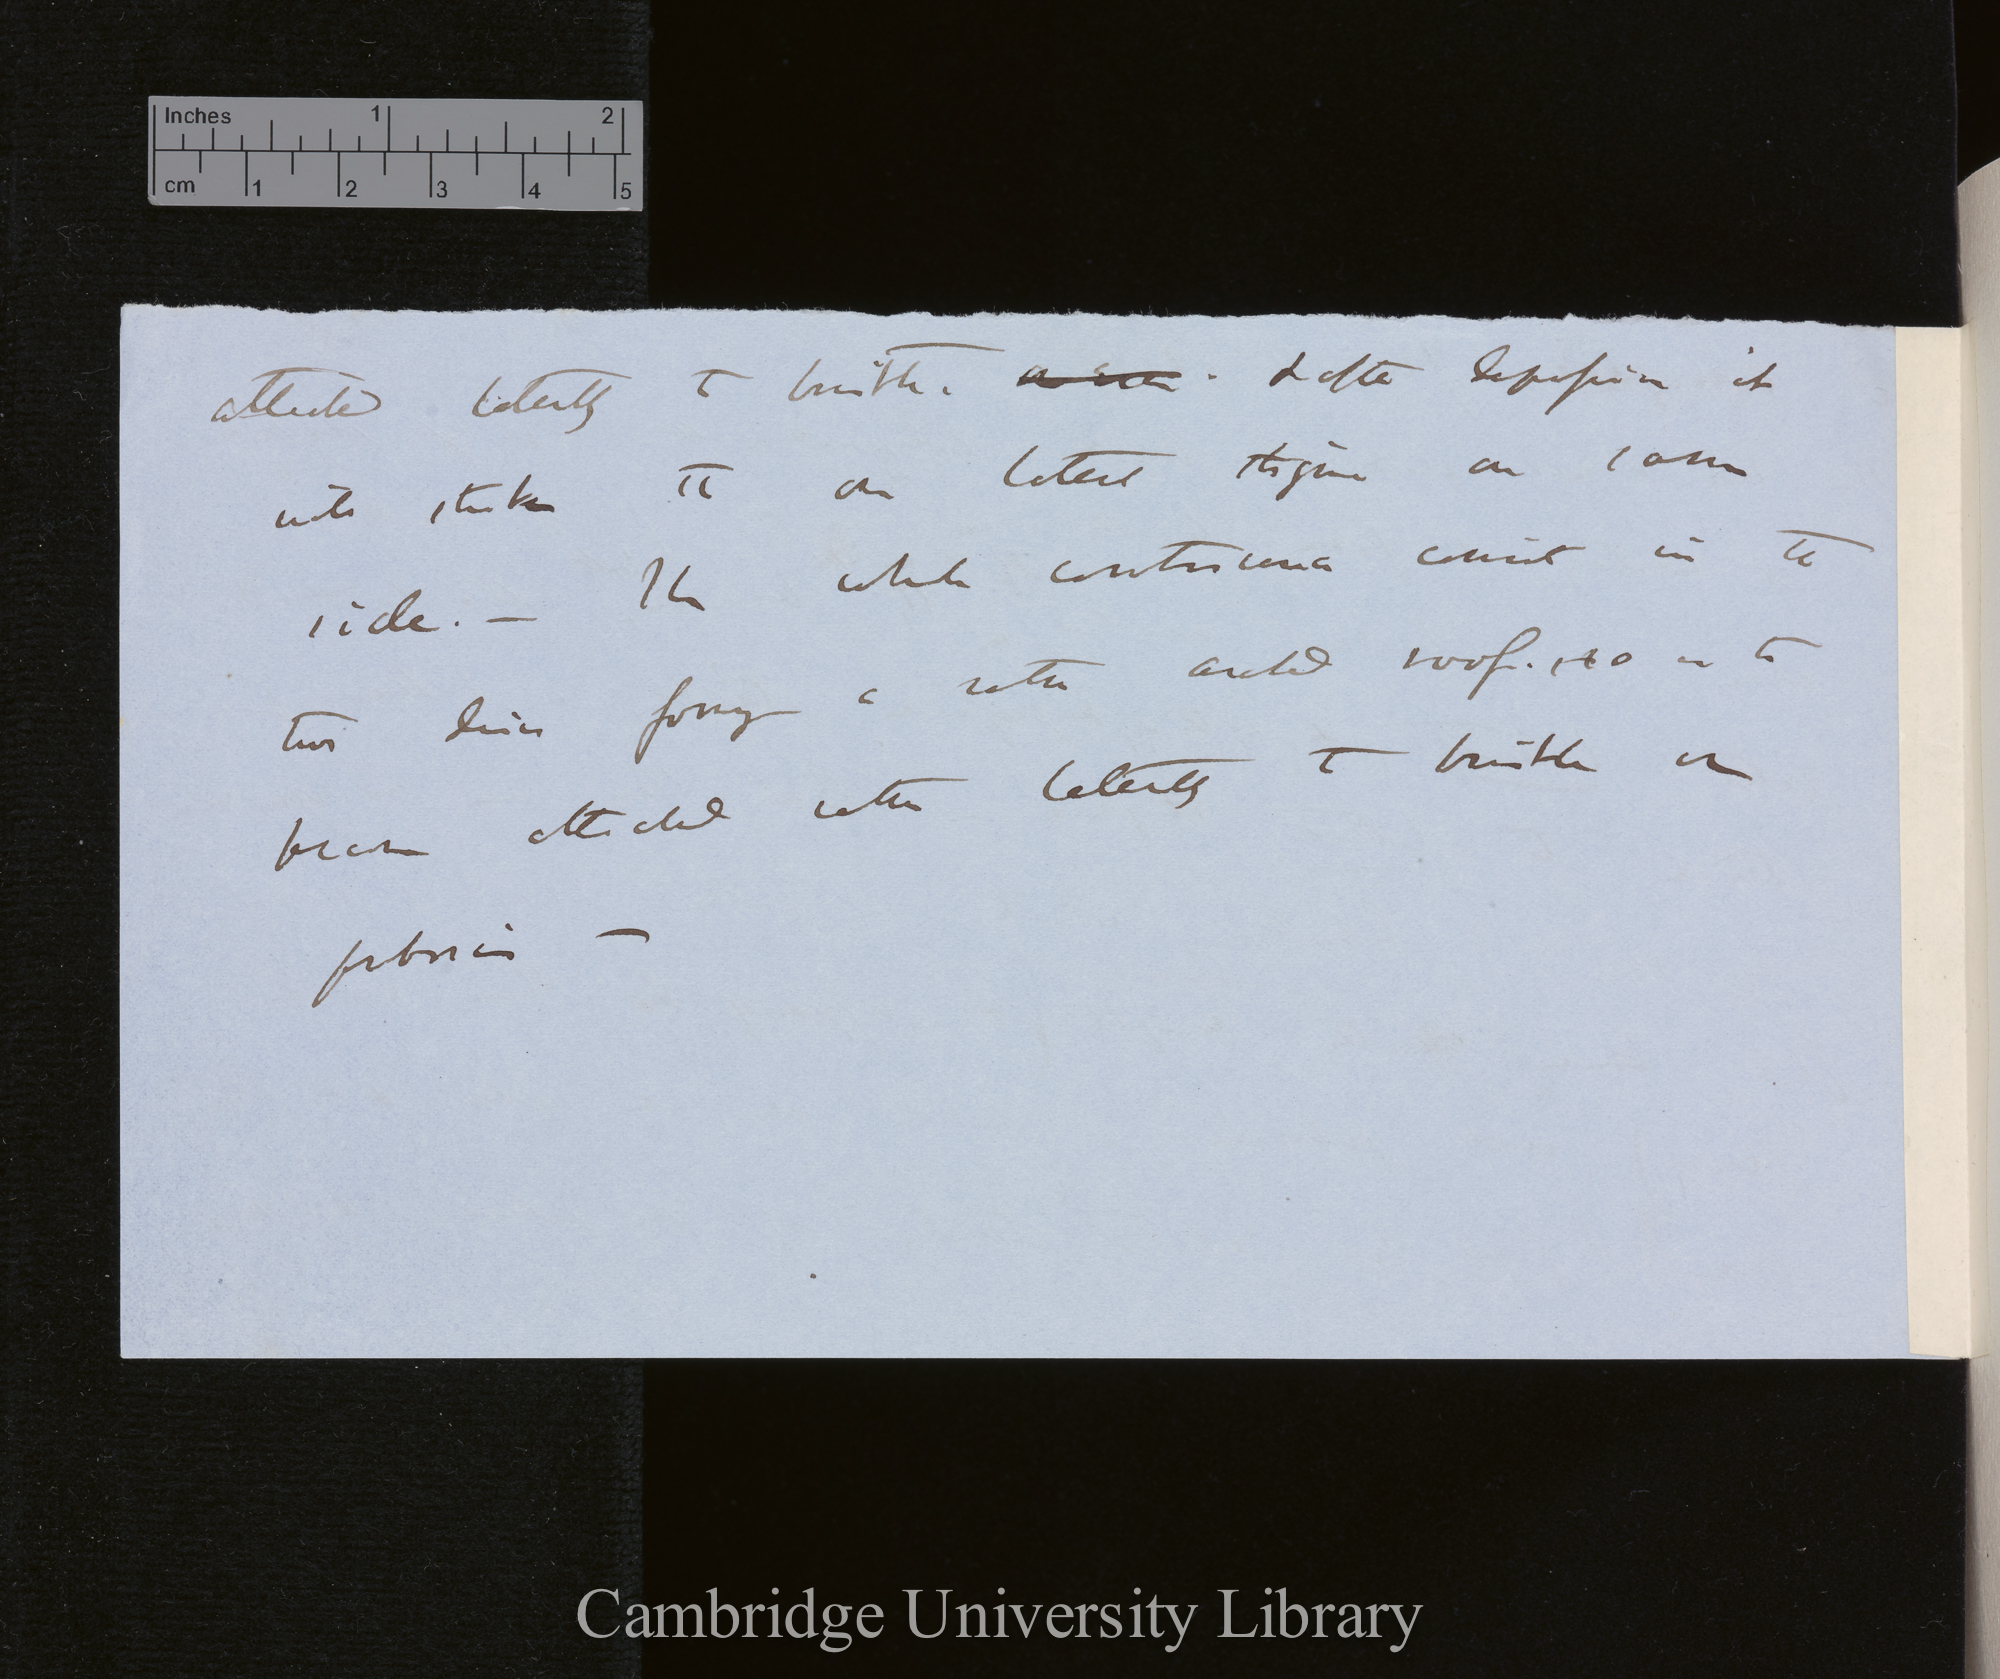 Inches 1 2
cm 1 2 3 4 5
attached laterally to bristle. & after depression it
will strike the one lateral stigma on same
side. — The whole contrivance consist in the
two discs forming a rather arched roof. so as to
become attached rather laterally to bristle or
proboscis —
Cambridge University Library